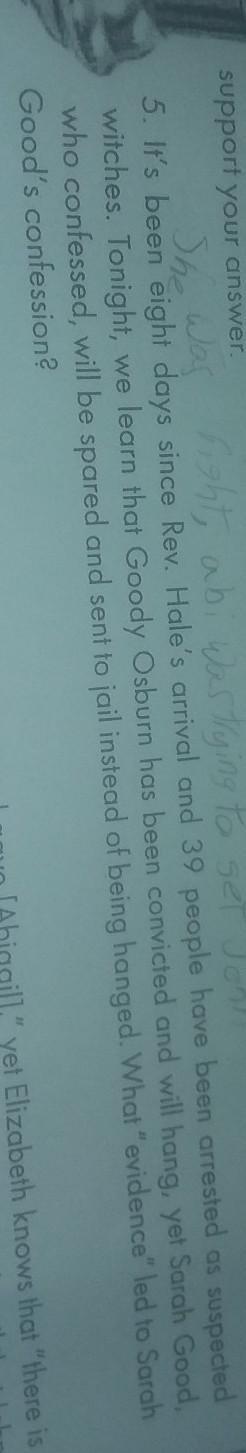 support your answer.
She was right, abi was trying to get John
5. It's been eight days since Rev. Hale's arrival and 39 people have been arrested as suspected
witches. Tonight, we learn that Goody Osburn has been convicted and will hang, yet Sarah Good,
who confessed, will be spared and sent to jail instead of being hanged. What "evidence" led to Sarah
Good's confession?
[Abigail]," yet Elizabeth knows that "there is